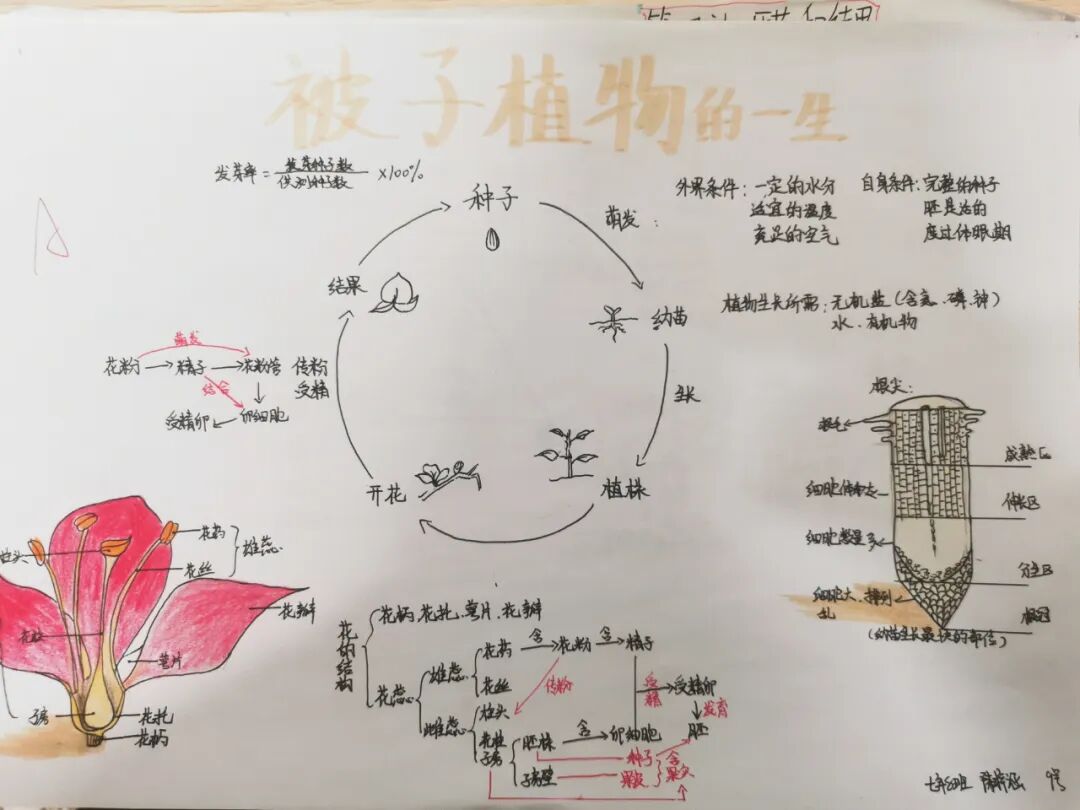 被子植物的一生
发芽率=发芽种子数/供测种子数×100%
种子
萌发:
外界条件:一定的水分
适宜的温度
充足的空气
自身条件:完整的种子
胚是活的
度过休眠期
结果
幼苗
植物生长所需:无机盐(含氮、磷、钾)
水、有机物
萌发
花粉→精子→花粉管
结合
受精卵←卵细胞
传粉
受精
生长
开花
植株
根尖:
根毛
成熟区
细胞体积大
伸长区
细胞数量多
分生区
细胞大、排列
乱
根冠
(幼苗生长最快的部位)
花药
雄蕊
柱头
花丝
花瓣
花柱
萼片
子房
花托
花柄
花的结构
花柄、花托、萼片、花瓣
花蕊
雄蕊
花药→含→花粉→含→精子
花丝
传粉
受精
受精卵
发育
雌蕊
柱头
花柱
子房
胚珠→含→卵细胞
胚
种子
子房壁
果皮
A